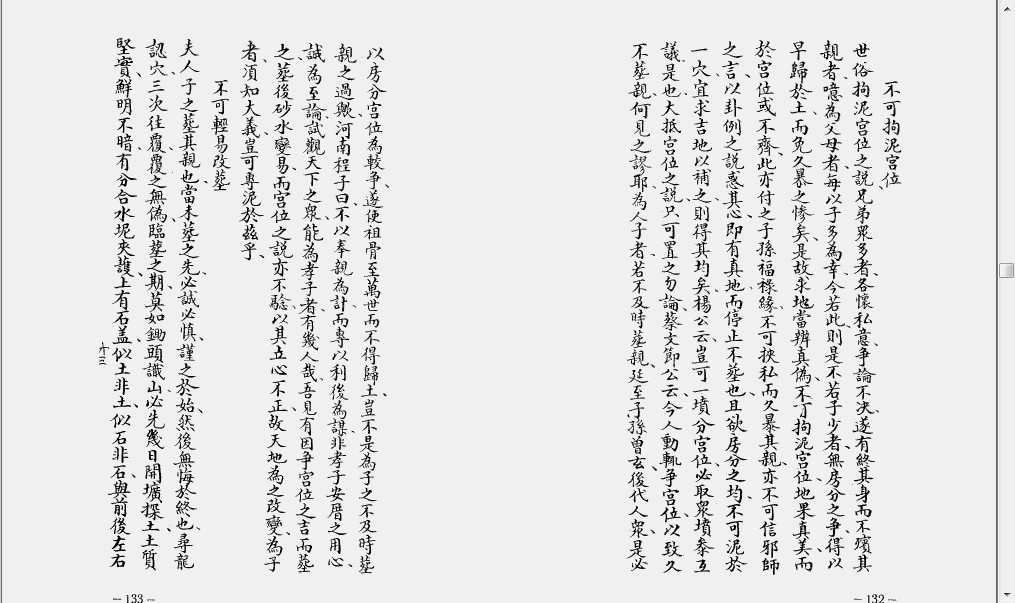 不可拘泥宮位
世俗拘泥宮位之説兄弟眾多者各懷私意爭論不决遂有終其身而不殯其
親者噫為父母者每以子多為幸今若此則是不若子少者無房分之爭得以
早歸於土而免久暴之慘矣是故求地當辨真偽不可拘泥宮位地果真美而
於宮位或不齊此亦付之子孫福祿緣不可挾私而久暴其親亦不可信邪師
之言以卦例之説惑其心即有真地而停止不塟也且欲房分之均不可泥於
一穴宜求吉地以補之則得其均矣楊公云豈可一墳分宮位必取眾墳叅互
議是也大抵宮位之説只可置之勿論蔡文節公云今人動輒爭宮位以致久
不塟親何見之謬耶為人子者若不及時塟親延至子孫曾玄後代人眾是必
－132－
以房分宮位為較爭遂使祖骨至萬世而不得歸土豈不是為子之不及時塟
親之過歟河南程子曰不以奉親為計而專以利後為謀非孝子安厝之用心
誠為至論試觀天下之眾能為孝子者有幾人哉吾見有因爭宮位之吉而塟
之塟後砂水變易而宮位之説亦不驗以其立心不正故天地為之改變為子
者須知大義豈可專泥於茲乎
不可輕易改塟
夫人子之塟其親也當未塟之先必誠必慎謹之於始然後無悔於終也尋龍
認穴三次往覆覆之無偽臨塟之期莫如鋤頭識山必先幾日開壙探土土質
堅實鮮明不暗有分合水坭夾護上有石盖似土非土似石非石與前後左右
六三
－133－